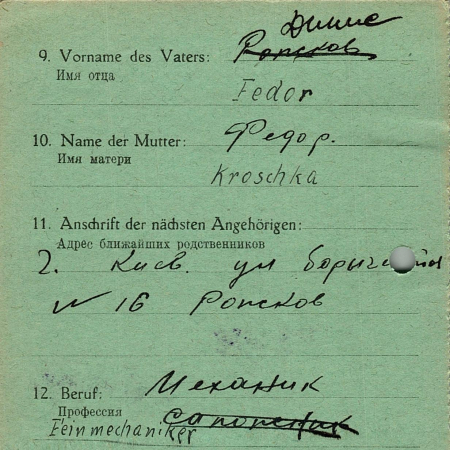 9. Vorname des Vaters: Ропсков
Имя отца
Fedor
10. Name der Mutter: Федор.
Имя матери
Kroschka
11. Anschrift der nächsten Angehörigen:
Адрес ближайших родственников
г. Киев. ул
№ 16 Ропсков
12. Beruf: Механик
Профессия
Feinmechaniker